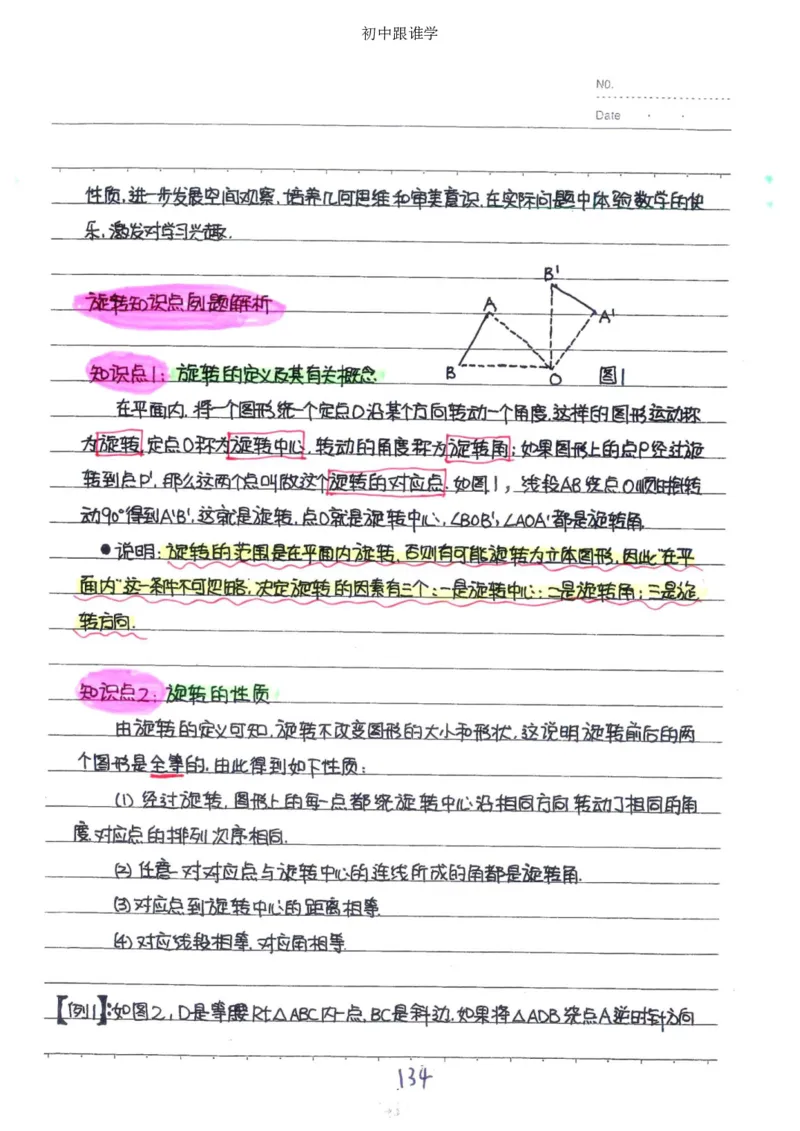 初中跟谁学
NO.
Date
性质,进一步发展空间观察,培养几何思维和审美意识,在实际问题中体验数学的快
乐,激发对学习兴趣.
旋转知识点例题解析
B'
A
A'
B
O
图1
知识点1:旋转的定义及其有关概念
在平面内,将一个图形绕一个定点O沿某个方向转动一个角度,这样的图形运动称
为旋转,定点O称为旋转中心,转动的角度称为旋转角;如果图形上的点P经过旋
转到点P',那么这两个点叫做这个旋转的对应点.如图1,线段AB绕点O顺时针转
动90°得到A'B',这就是旋转,点O就是旋转中心,∠BOB',∠AOA'都是旋转角.
●说明:旋转的范围是在平面内旋转,否则有可能旋转为立体图形,因此"在平
面内"这一条件不可忽略;决定旋转的因素有三个:一是旋转中心;二是旋转角;三是旋
转方向.
知识点2:旋转的性质
由旋转的定义可知,旋转不改变图形的大小和形状,这说明旋转前后的两
个图形是全等的,由此得到如下性质:
(1)经过旋转,图形上的每一点都绕旋转中心沿相同方向转动了相同的角
度,对应点的排列次序相同.
(2)任意一对对应点与旋转中心的连线所成的角都是旋转角.
(3)对应点到旋转中心的距离相等.
(4)对应线段相等,对应角相等.
【例1】:如图2,D是等腰Rt△ABC内一点,BC是斜边,如果将△ADB绕点A逆时针方向
134